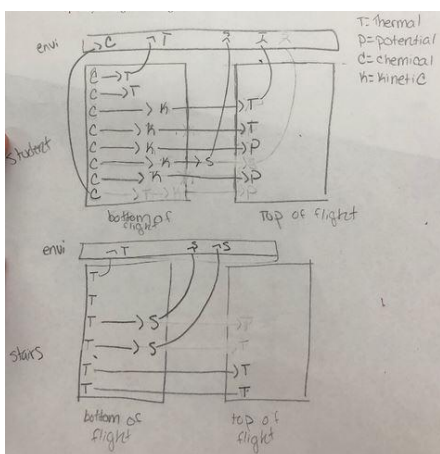 T: Thermal
P= potential
C= chemical
K= Kinetic
envi
C → T S T
Student
C → T
C → T
C → K → T
C → K → T
C → K → P
C → K → S
C → K → P
C T K P
bottom of flight
Top of flight
envi
T S S
stairs
T
T
T → S T
T → S T
T → T
T → T
bottom of flight
top of flight